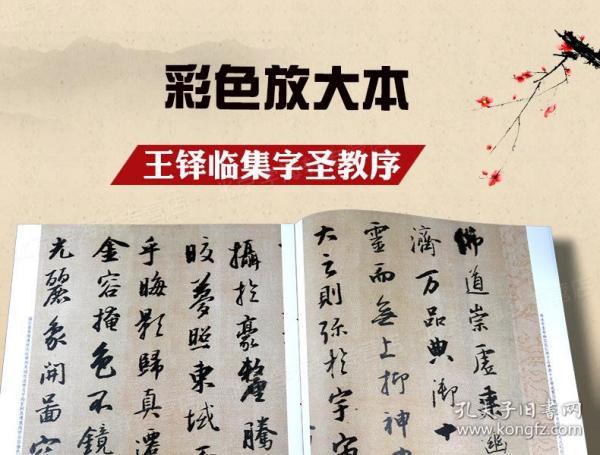 彩色放大本
王铎临集字圣教序
佛道崇虚乘幽
濟万品典御十
靈而無上抑神
大之則彌於宇宙
攝於豪釐
騰
晈夢照東域
乎晦影歸真遷
金容掩色不鏡
光麗象開圖
孔夫子旧书网
www.kongfz.com